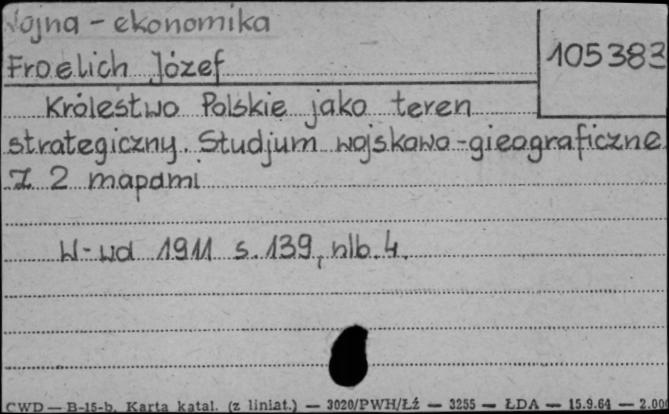 Wojna - ekonomika
Froelich Józef
105383
Królestwo Polskie jako teren
strategiczny. Studjum wojskowo-gieograficzne
z 2 mapami
W-wa 1911 s. 139, nlb. 4.
CWD — B-15-b. Karta katal. (z liniat.) — 3020/PWH/Łź — 3255 — ŁDA — 15.9.64 — 2.00